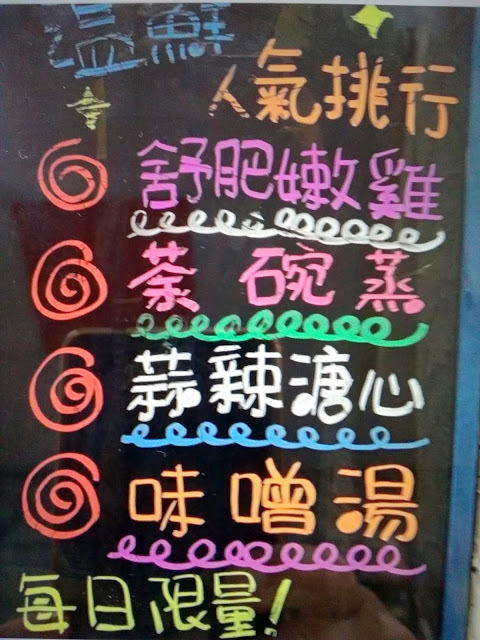 溫鮮
人氣排行
舒肥嫩雞
茶碗蒸
蒜辣溏心
味噌湯
每日限量!